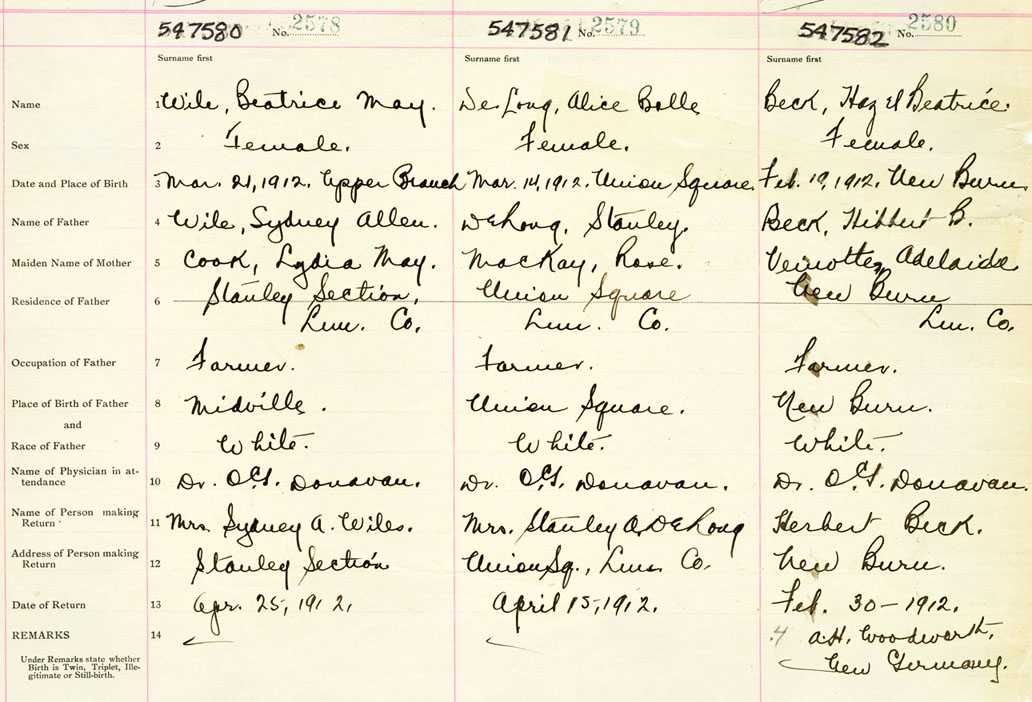 547580 No. 2578 547581 No. 2579 547582 No. 2580
Surname first Surname first Surname first
Name 1 Wile, Beatrice May. DeLong, Alice Belle Beck, Hazel Beatrice.
Sex 2 Female. Female. Female.
Date and Place of Birth 3 Mar. 21, 1912. Upper Branch Mar. 14, 1912. Union Square. Feb. 19, 1912. New Burn
Name of Father 4 Wile, Sydney Allen. DeLong, Stanley. Beck, Hibbert B.
Maiden Name of Mother 5 Cook, Lydia May. MacKay, Rose. Veinotte, Adelaide
Residence of Father 6 Stanley Section, Union Square New Burn
Lun. Co. Lun. Co. Lun. Co.
Occupation of Father 7 Farmer. Farmer. Farmer.
Place of Birth of Father 8 Midville. Union Square. New Burn.
and
Race of Father 9 White. White. White.
Name of Physician in at-
tendance 10 Dr. Donavan. Dr. Donavan. Dr. Donavan.
Name of Person making
Return 11 Mrs. Sydney A. Wiles. Mrs. Stanley A. DeLong Herbert Beck.
Address of Person making
Return 12 Stanley Section Union Sq., Lun. Co. New Burn.
Date of Return 13 Apr. 25, 1912. April 15, 1912. Feb. 30-1912.
REMARKS 14 A.H. Woodworth,
New Germany.
Under Remarks state whether
Birth is Twin, Triplet, Ille-
gitimate or Still-birth.